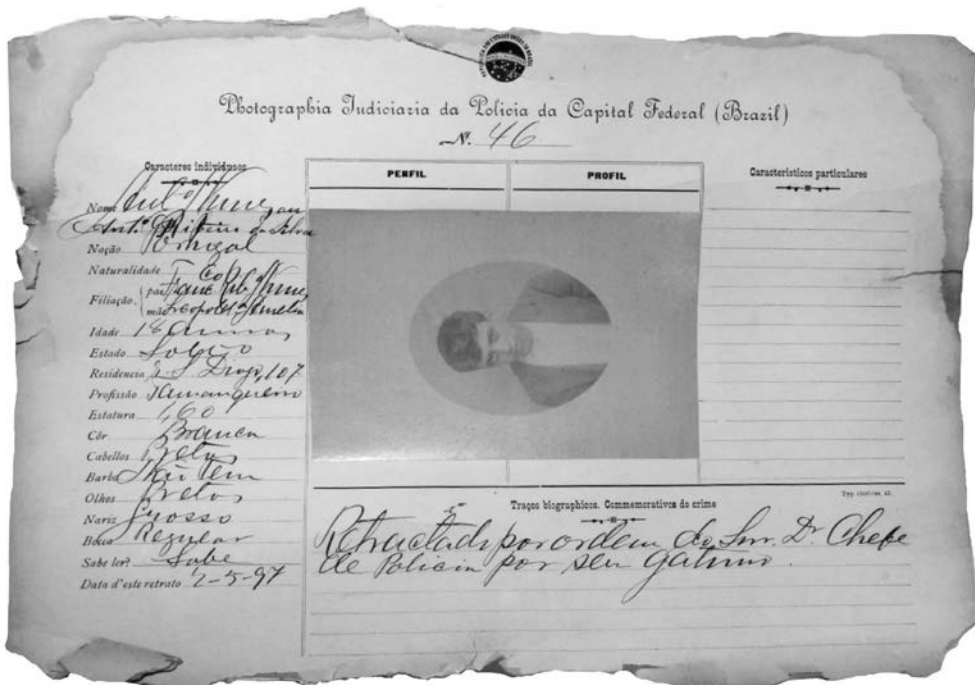 Photographia Judiciaria da Policia da Capital Federal (Brazil)
N. 46
Caracteres individuaes
Nome
Antº Ribeiro da Silva
Nação Portugal
Naturalidade
Filiação. pai
mãe
Idade 18 annos
Estado Solteiro
Residencia 107
Profissão Tamanqueiro
Estatura 1,60
Côr Branca
Cabellos Pretos
Barba Não tem
Olhos Pretos
Nariz Grosso
Bôca Regular
Sabe ler? Sabe
Data d'este retrato 2-5-97
PERFIL
PROFIL
Caracteristicos particulares
Traços biographicos. Commemorativos do crime
Retractado por ordem do Snr. Dr. Chefe
de Policia por ser gatuno.